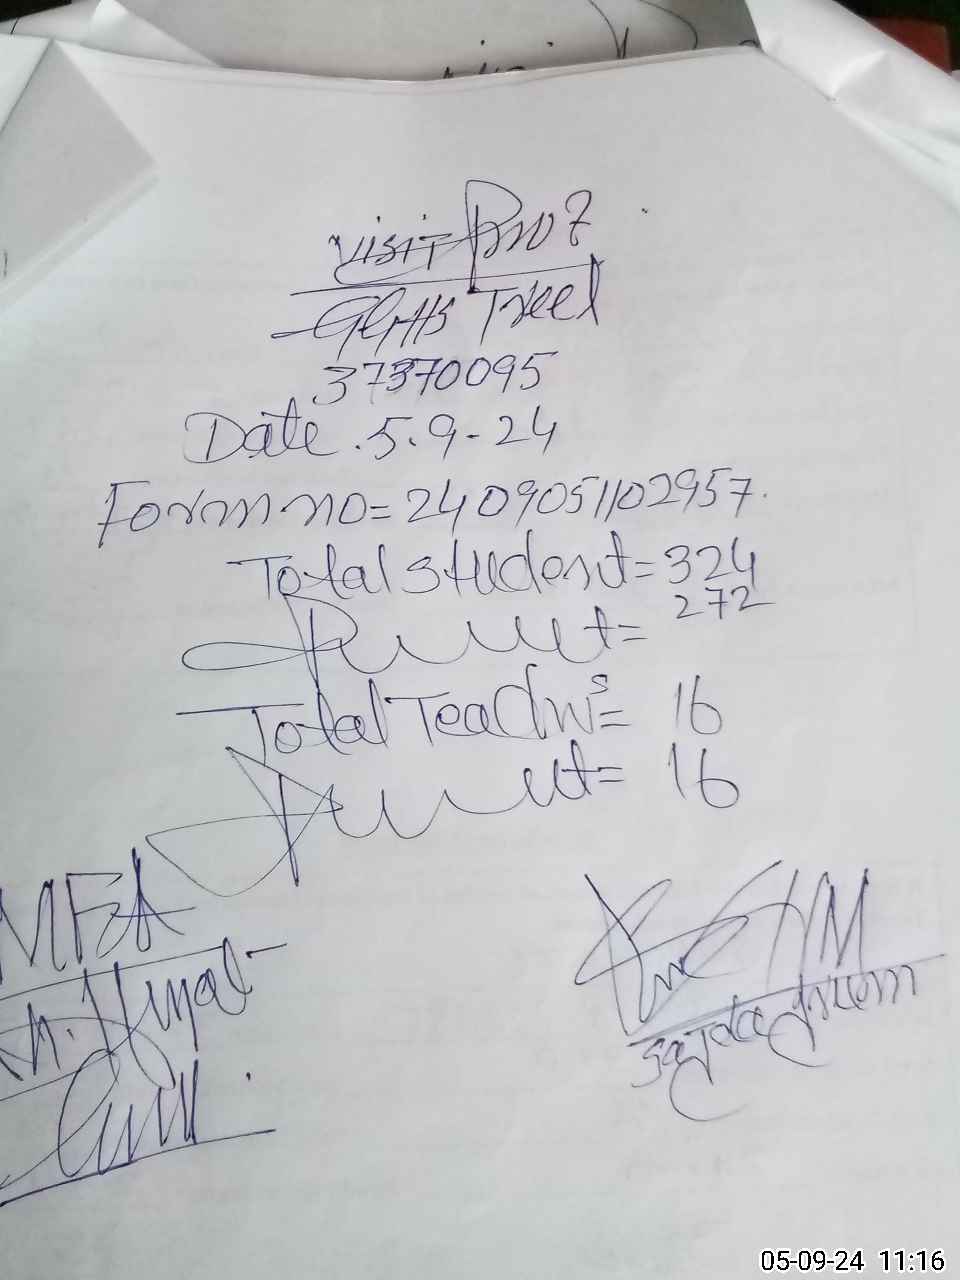 Visit Proof
GGHS Treel
37370095
Date . 5.9-24
Form no = 2409051102957.
Total student = 324
Present = 272
Total Teachers = 16
Present = 16
MEA
HM
Sajda
05-09-24 11:16